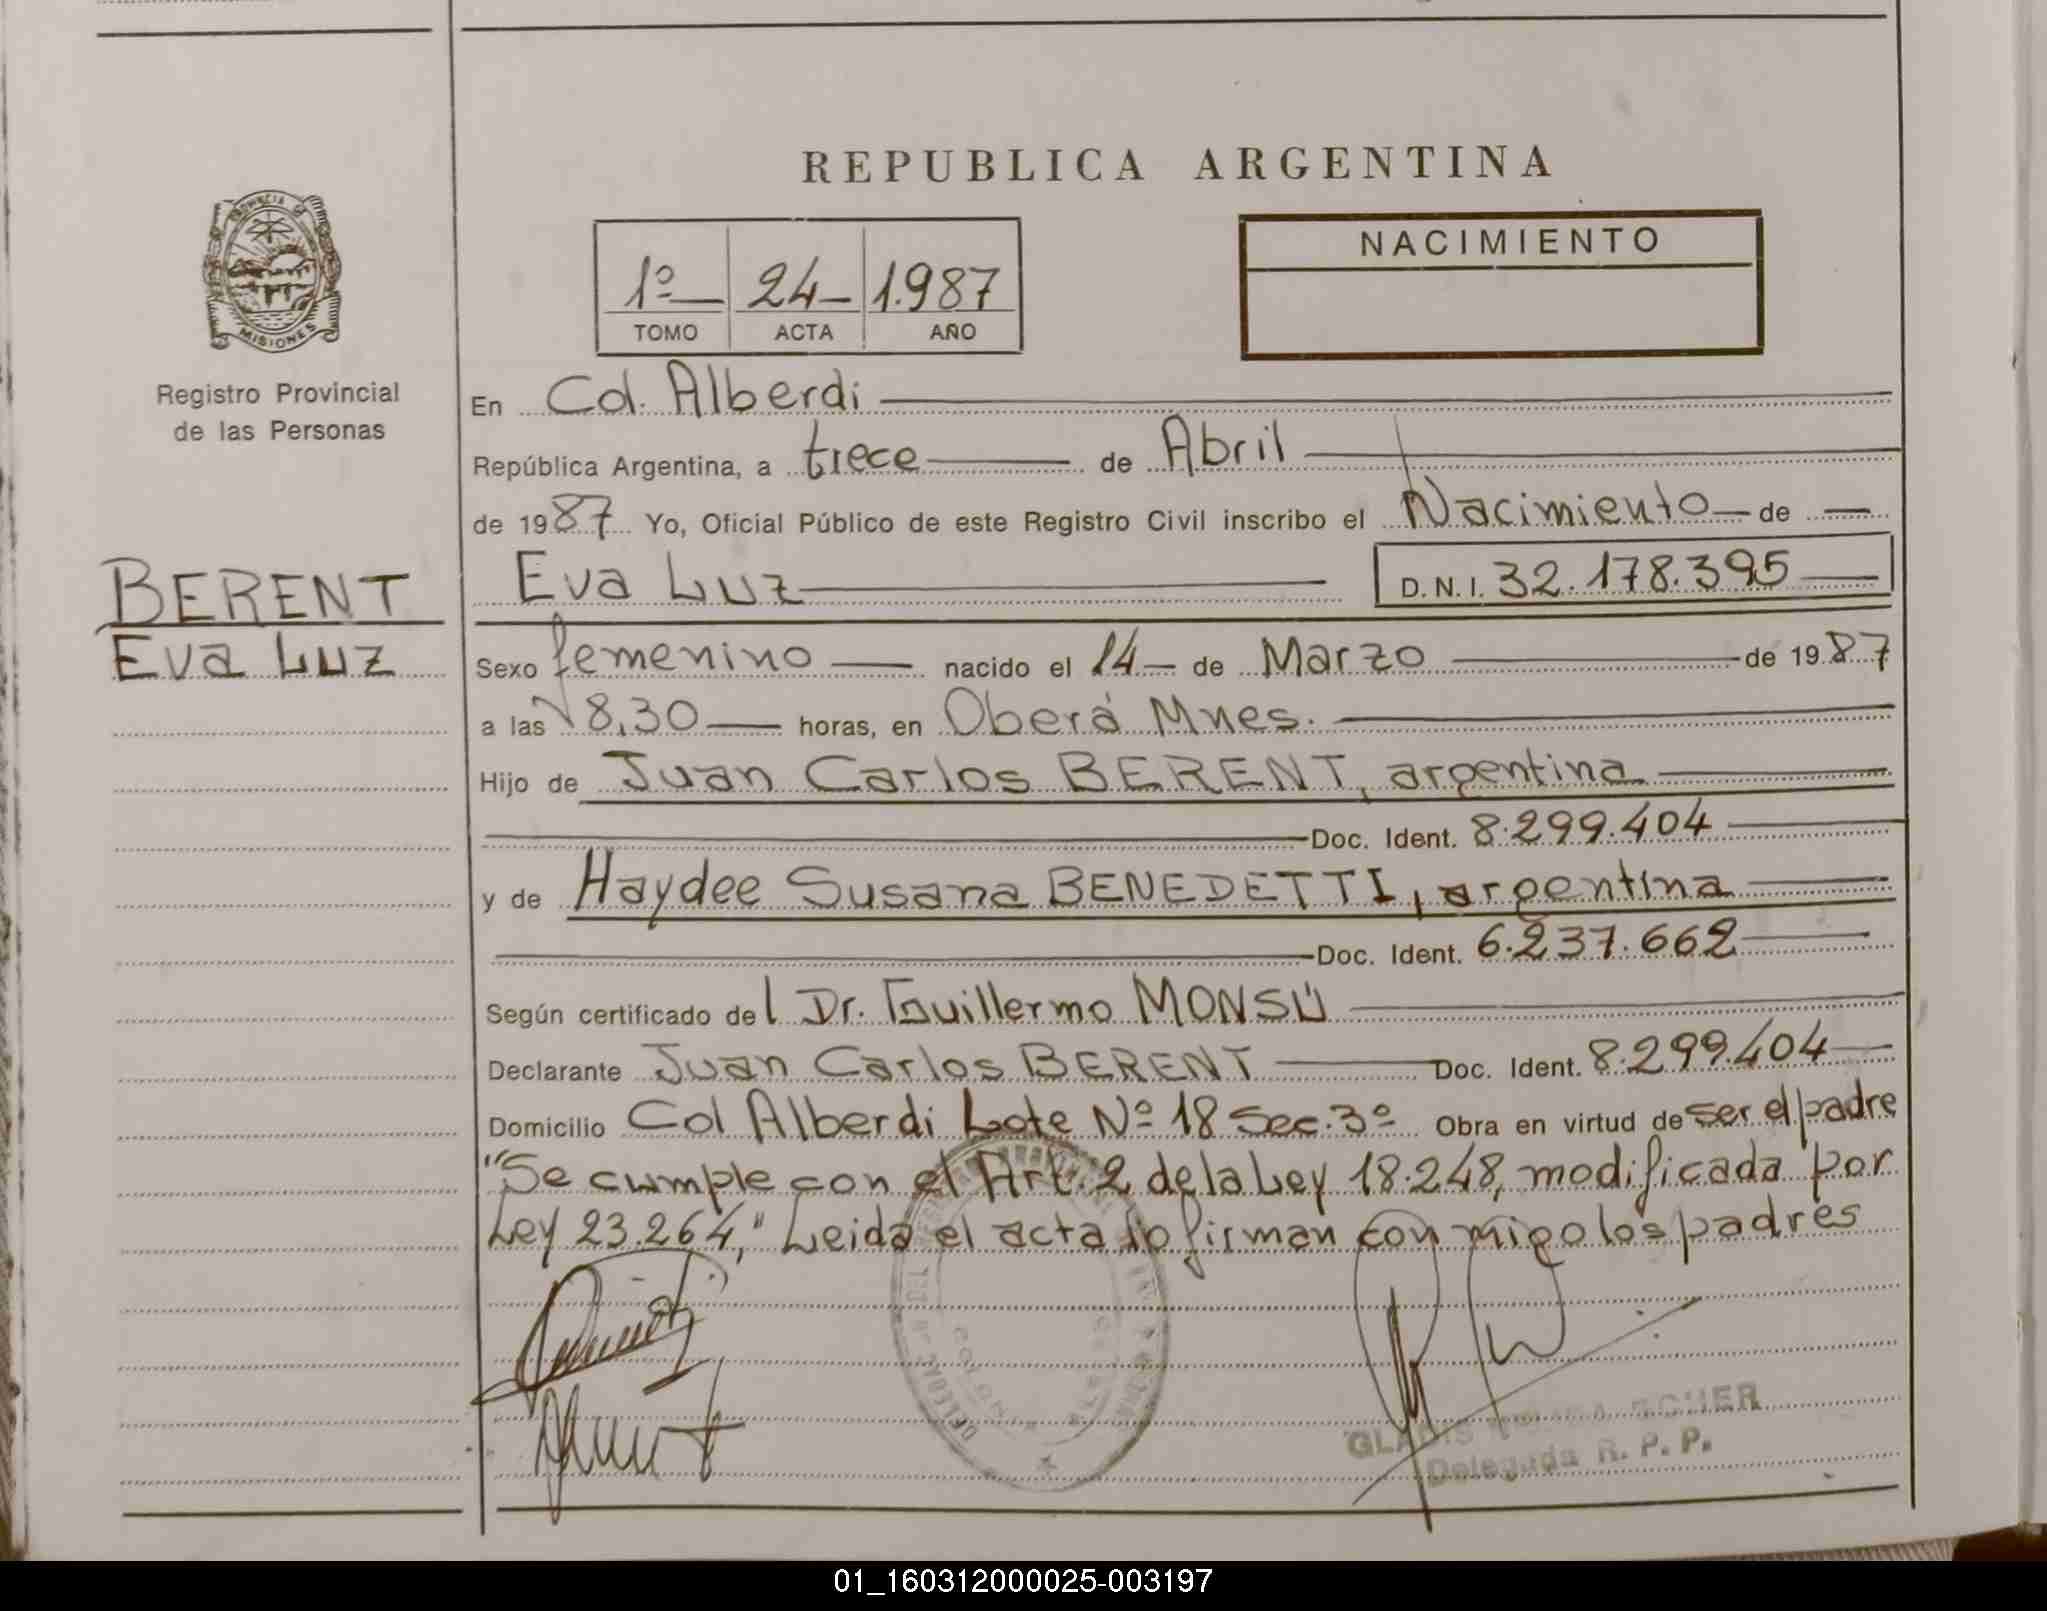 REPUBLICA ARGENTINA
PROVINCIA DE MISIONES
Registro Provincial
de las Personas
1º 24 1.987
TOMO ACTA AÑO
NACIMIENTO
En Col. Alberdi
República Argentina, a trece de Abril
de 1987 Yo, Oficial Público de este Registro Civil inscribo el Nacimiento de
BERENT
Eva Luz
Eva Luz D.N.I. 32.178.395
Sexo femenino nacido el 14 de Marzo de 1987
a las 8,30 horas, en Oberá Mnes.
Hijo de Juan Carlos BERENT, argentina
Doc. Ident. 8.299.404
y de Haydee Susana BENEDETTI, argentina
Doc. Ident. 6.237.662
Según certificado del Dr. Guillermo MONSÚ
Declarante Juan Carlos BERENT Doc. Ident. 8.299.404
Domicilio Col Alberdi Lote Nº 18 Sec. 3º Obra en virtud de ser el padre
"Se cumple con el Art. 2 de la Ley 18.248, modificada por
Ley 23.264," Leida el acta lo firman con migo los padres
GLADIS
Delegada R. P. P.
01_160312000025-003197